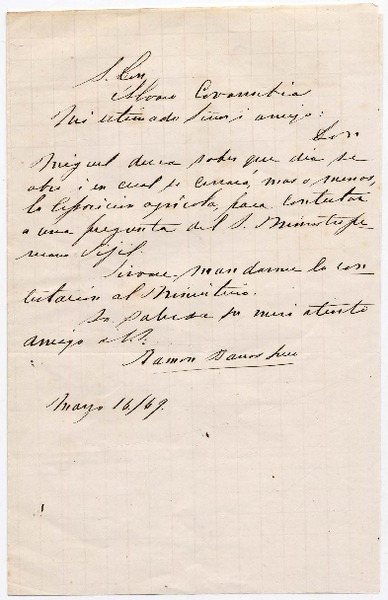 S. Don
Alvaro Covarrubia
Mi estimado Señor i amigo:
Don
Miguel desea saber que dia se
abre i en cual se cerrará, mas o menos,
la Esposicion agricola, para contestar
a una pregunta del S. Ministro pe-
ruano Vijil.
Sirvase mandarme la con-
testacion al Ministerio.
Lo saluda su mui atento
amigo de V.
Ramon Barros Luco
Mayo 16/69.